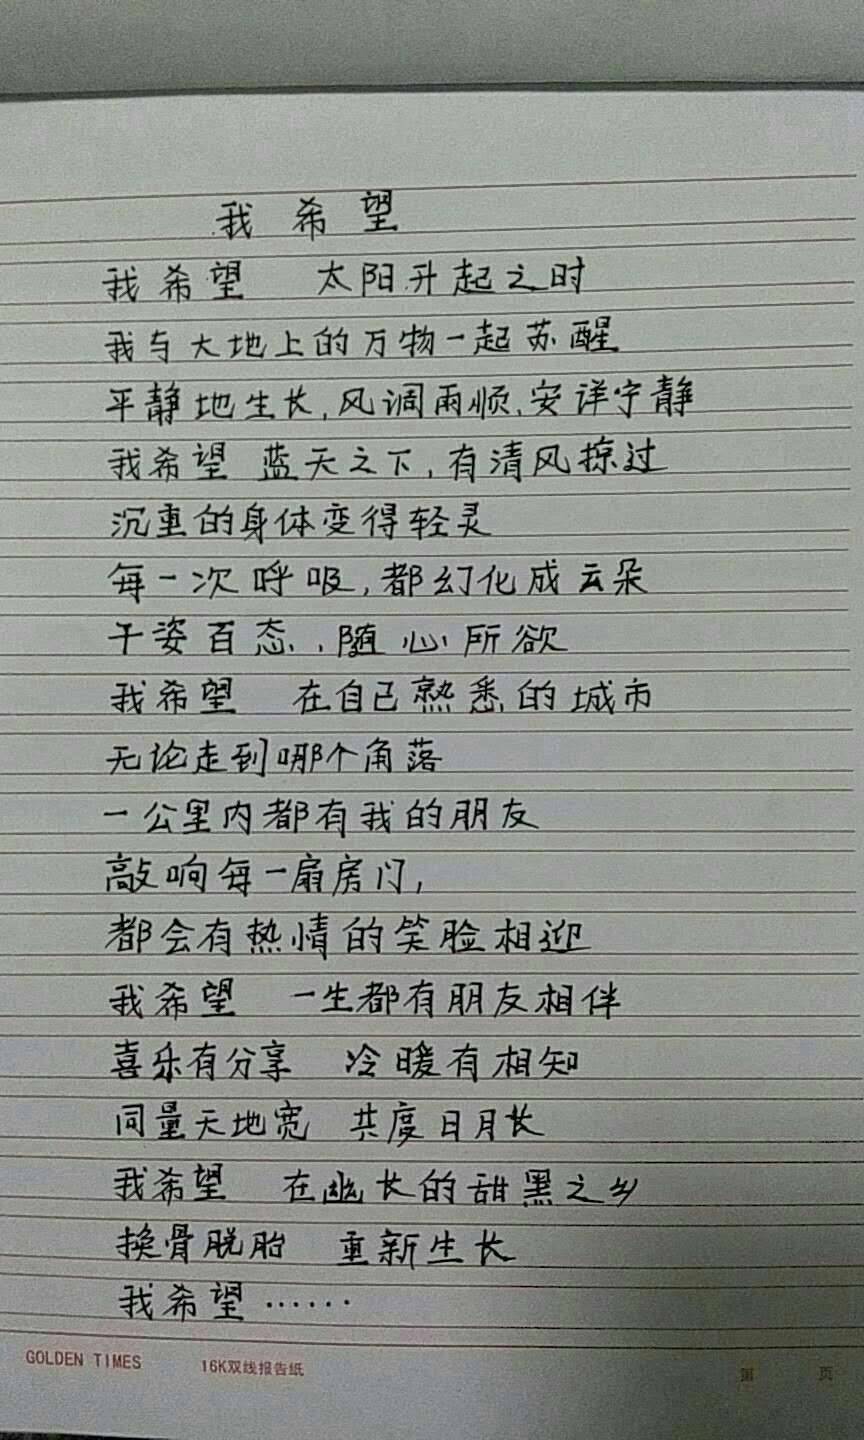 我希望
我希望 太阳升起之时
我与大地上的万物一起苏醒
平静地生长,风调雨顺,安详宁静
我希望 蓝天之下,有清风掠过
沉重的身体变得轻灵
每一次呼吸,都幻化成云朵
千姿百态,随心所欲
我希望 在自己熟悉的城市
无论走到哪个角落
一公里内都有我的朋友
敲响每一扇房门,
都会有热情的笑脸相迎
我希望 一生都有朋友相伴
喜乐有分享 冷暖有相知
同量天地宽 共度日月长
我希望 在幽长的甜黑之乡
换骨脱胎 重新生长
我希望……
GOLDEN TIMES 16K双线报告纸 第 页